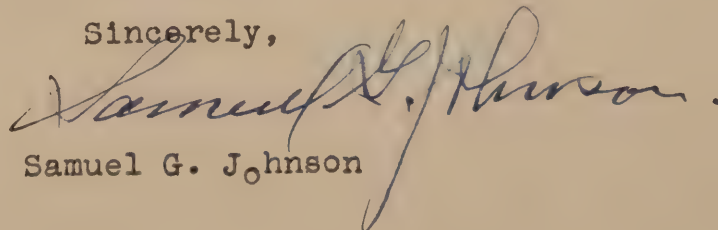 Sincerely,
Samuel G. Johnson.
Samuel G. Johnson